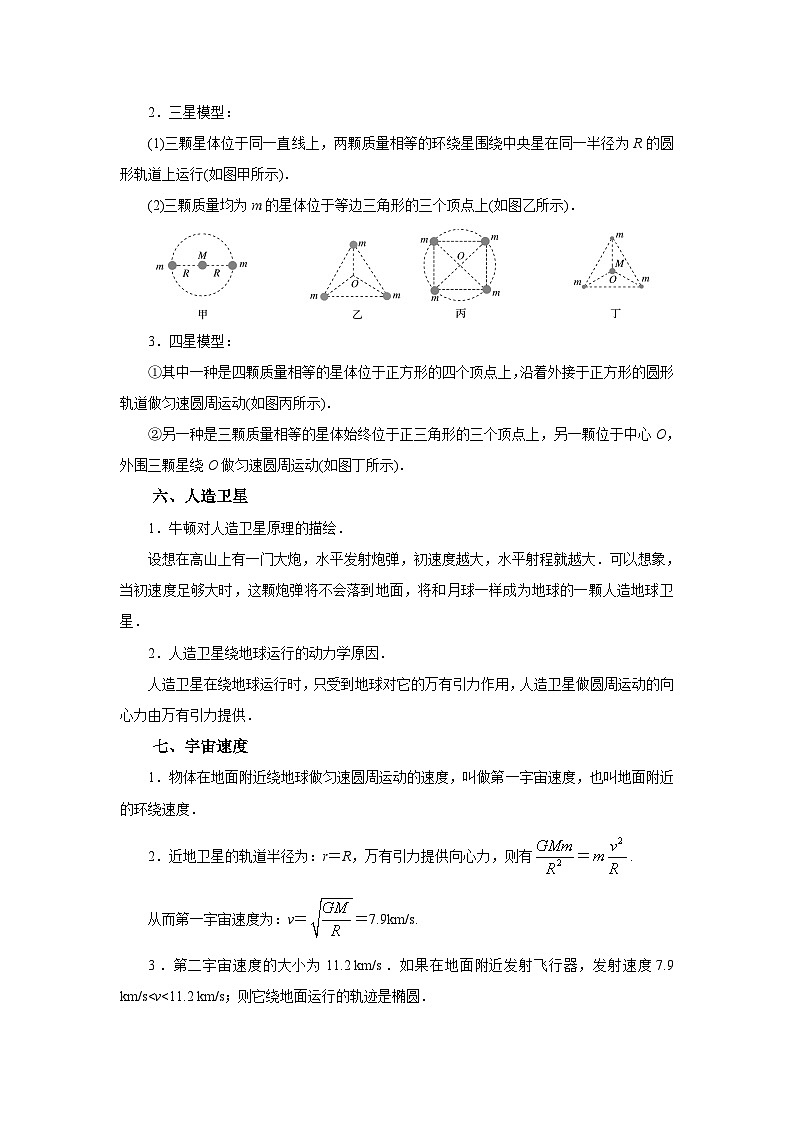 2．三星模型：
(1)三颗星体位于同一直线上，两颗质量相等的环绕星围绕中央星在同一半径为 R 的圆
形轨道上运行(如图甲所示)．
(2)三颗质量均为 m 的星体位于等边三角形的三个顶点上(如图乙所示)．
m R M R m
甲
m O m m
乙
m m O m m
丙
m M O m m
丁
3．四星模型：
①其中一种是四颗质量相等的星体位于正方形的四个顶点上，沿着外接于正方形的圆形
轨道做匀速圆周运动(如图丙所示)．
②另一种是三颗质量相等的星体始终位于正三角形的三个顶点上，另一颗位于中心 O，
外围三颗星绕 O 做匀速圆周运动(如图丁所示)．
六、人造卫星
1．牛顿对人造卫星原理的描绘．
设想在高山上有一门大炮，水平发射炮弹，初速度越大，水平射程就越大．可以想象，
当初速度足够大时，这颗炮弹将不会落到地面，将和月球一样成为地球的一颗人造地球卫
星．
2．人造卫星绕地球运行的动力学原因．
人造卫星在绕地球运行时，只受到地球对它的万有引力作用，人造卫星做圆周运动的向
心力由万有引力提供．
七、宇宙速度
1．物体在地面附近绕地球做匀速圆周运动的速度，叫做第一宇宙速度，也叫地面附近
的环绕速度．
2．近地卫星的轨道半径为：r＝R，万有引力提供向心力，则有 GMm/R² ＝ m v²/R ．
从而第一宇宙速度为：v＝ √(GM/R) ＝7.9km/s.
3．第二宇宙速度的大小为 11.2 km/s．如果在地面附近发射飞行器，发射速度 7.9
km/s<v<11.2 km/s；则它绕地面运行的轨迹是椭圆．